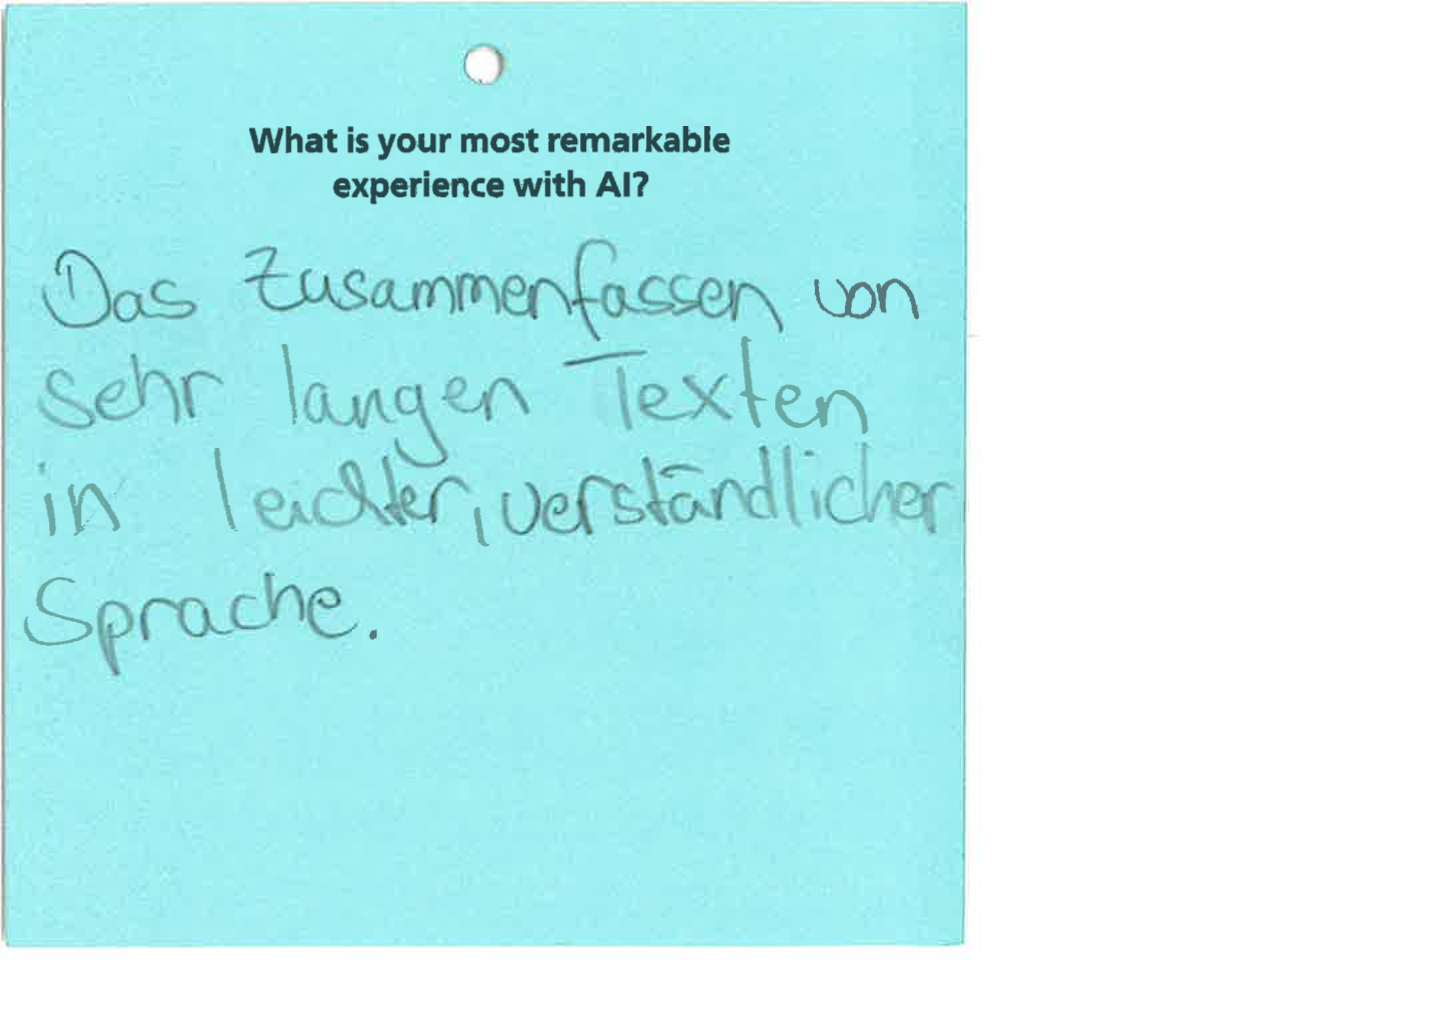 What is your most remarkable
experience with AI?
Das Zusammenfassen von
sehr langen Texten
in leichter, verständlicher
Sprache.